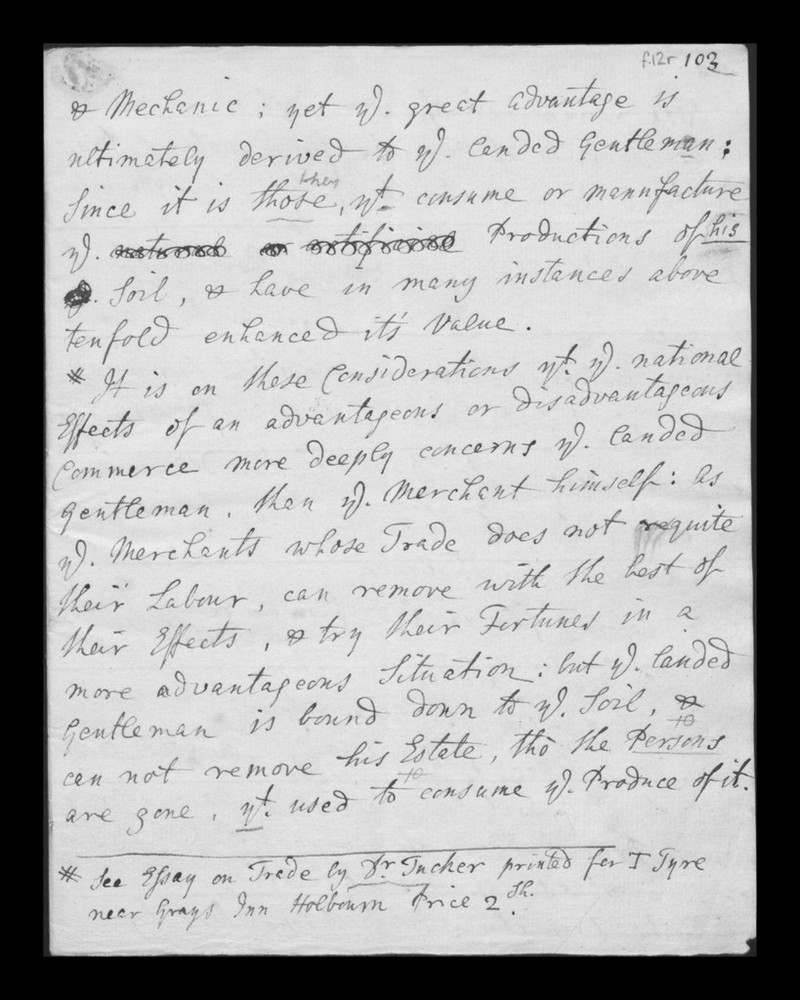 f.12r 103
& Mechanic ; yet ye. great advantage is
ultimately derived to ye. Landed Gentleman :
they
Since it is those, yt. consume or manufacture
ye. natural or artificial Productions of his
Soil, & have in many instances above
tenfold enhanced it's Value .
* It is on these Considerations yt. ye. national
Effects of an advantageous or disadvantageous
Commerce more deeply concerns ye. Landed
Gentleman , than ye. Merchant himself : as
ye. Merchants whose Trade does not requite
their Labour, can remove with the best of
their Effects , & try their Fortunes in a
more advantageous Situation : but ye. Landed
Gentleman is bound down to ye. Soil, &
can not remove his Estate, tho the Persons
are gone , yt. used to consume ye. Produce of it.
* See Essay on Trade by Dr. Tucker printed for T Tyre
near Grays Inn Holbourn Price 2 Sh.